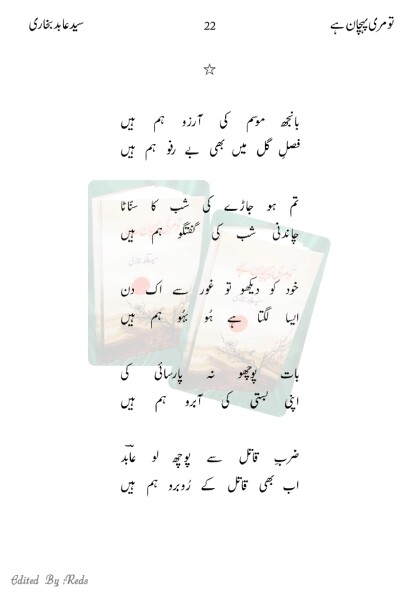 تو مری پہچان ہے 22 سید عابد بخاری
☆
بانجھ موسم کی آرزو ہم ہیں
فصلِ گل میں بھی بے رفو ہم ہیں
تم ہو جاڑے کی شب کا سنّاٹا
چاندنی شب کی گفتگو ہم ہیں
خود کو دیکھو تو غور سے اک دن
ایسا لگتا ہے ہُو بہُو ہم ہیں
بات پوچھو نہ پارسائی کی
اپنی بستی کی آبرو ہم ہیں
ضربِ قاتل سے پوچھ لو عابدؔ
اب بھی قاتل کے رُوبرو ہم ہیں
Edited By Reds